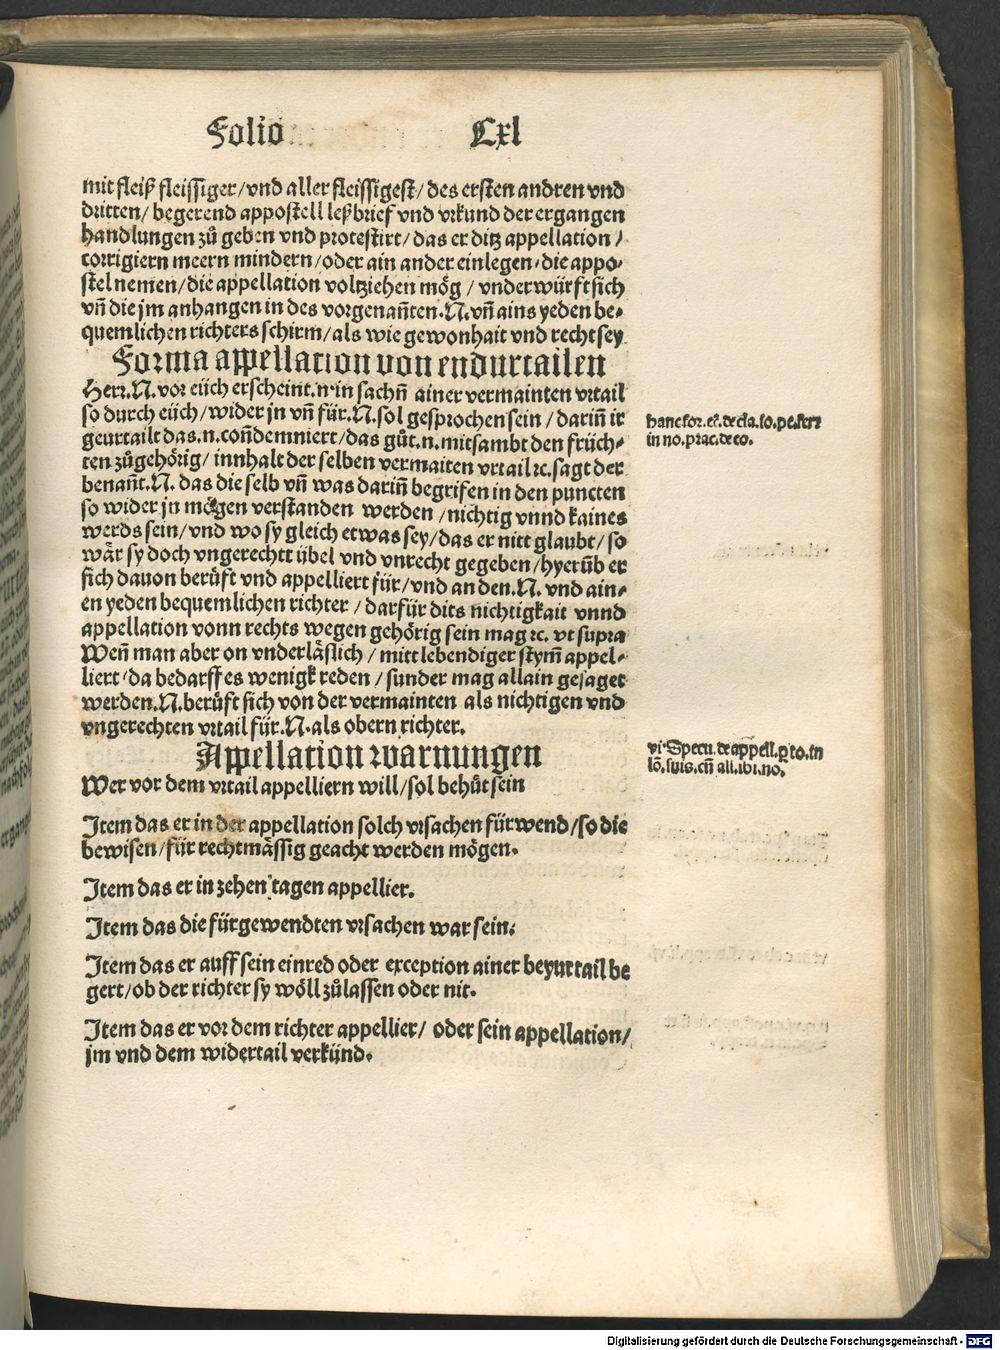 Folio Cxl
mit fleiß fleissiger/vnd aller fleissigest/des ersten andren vnd
dritten/begerend appostell leßbrief vnd vrkund der ergangen
handlungen zů geben vnd protestirt/das er ditz appellation/
corrigiern meern mindern/oder ain ander einlegen/die appo⸗
stel nemen/die appellation voltziehen mög/vnderwürft sich
vñ die jm anhangen in des vorgenañten.N.vñ ains yeden be⸗
quemlichen richters schirm/als wie gewonhait vnd recht sey
Forma appellation von endurtailen
Herr.N.vor eüch erscheint.n.in sachñ ainer vermainten vrtail
so durch eüch/wider jn vñ für.N.sol gesprochen sein/dariñ ir
geurtailt das.n.coñdemniert/das gůt.n.mitsambt den früch⸗
ten zůgehörig/innhalt der selben vermaiten vrtail ꝛc.sagt der
benañt.N.das die selb vñ was dariñ begrifen in den puncten
so wider jn mögen verstanden werden/nichtig vnnd kaines
werds sein/vnd wo sy gleich etwas sey/das er nitt glaubt/so
wär sy doch vngerechtt übel vnd vnrecht gegeben/hyerüb er
sich dauon berůft vnd appelliert für/vnd an den.N.vnd ain⸗
en yeden bequemlichen richter/darfür dits nichtigkait vnnd
appellation vonn rechts wegen gehörig sein mag ꝛc. vt supra
Weñ man aber on vnderläßlich/mitt lebendiger stym̃ appel⸗
liert/da bedarff es wenigk reden/sunder mag allain gesaget
werden.N.berůft sich von der vermainten als nichtigen vnd
vngerechten vrtail für.N.als obern richter.
Appellation warnungen
Wer vor dem vrtail appelliern will/sol behůt sein
Item das er in der appellation solch vrsachen fürwend/so die
bewisen/für rechtmässig geacht werden mögen.
Item das er in zehen tagen appellier.
Item das die fürgewendten vrsachen war sein.
Item das er auff sein einred oder exception ainer beyurtail be
gert/ob der richter sy wöll zůlassen oder nit.
Item das er vor dem richter appellier/oder sein appellation/
jm vnd dem widertail verkünd.
hanc for. de cla. so. pe.
in no. prac. de co.
vi. Specu. de appell. to. in
suis. cũ all. ibi. no.
Digitalisierung gefördert durch die Deutsche Forschungsgemeinschaft - DFG